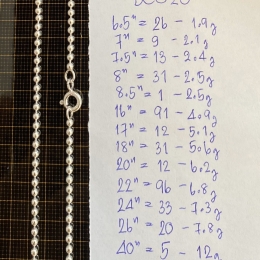 6.5" = 26 - 1.9g
7" = 9 - 2.1g
7.5" = 13 - 2.4g
8" = 31 - 2.5g
8.5" = 1 - 2.5g
16" = 91 - 4.9g
17" = 12 - 5.1g
18" = 31 - 5.6g
20" = 12 - 6.2g
22" = 96 - 6.8g
24" = 33 - 7.3g
26" = 20 - 7.8g
40" = 5 - 12g